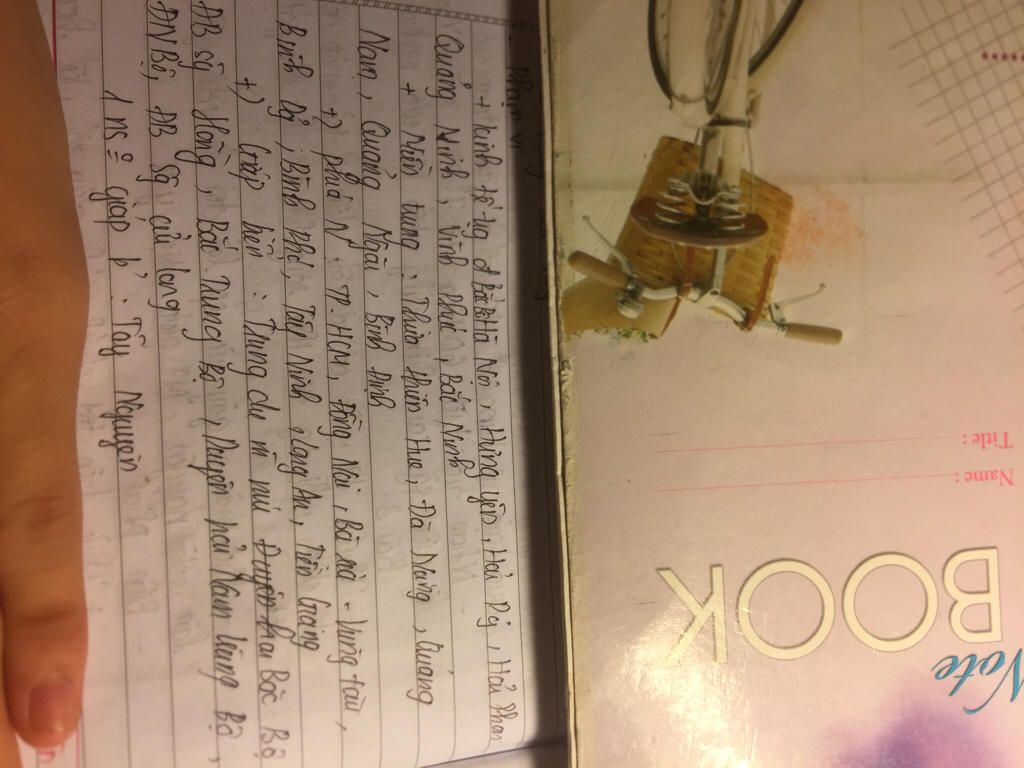 Phạm vi
+ kinh tế tđ Bắc Bộ: Hà Nội, Hưng yên, Hải Dg, Hải Phòng
Quảng Ninh, Vĩnh Phúc, Bắc Ninh
+ Miền trung: Thừa thiên Huế, Đà Nẵng, Quảng
Nam, Quảng Ngãi, Bình Định
+) phía N: TP. HCM, Đồng Nai, Bà rịa - Vũng tàu,
Bình Dg, Bình Phc, Tây Ninh, Long An, Tiền Giang
+) Giáp biển: Trung du m núi Bắc Bộ
ĐB sg Hồng, Bắc Trung Bộ, Duyên hải Nam Trung Bộ,
ĐNBộ, ĐB sg cửu long
1 ns o giáp b': Tây Nguyên
Note
BOOK
Name :
Title :